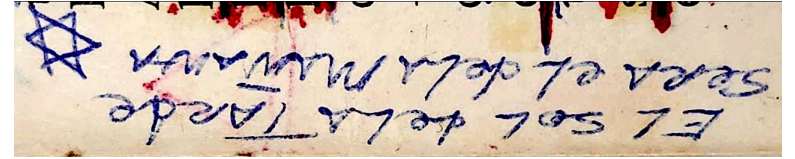 EL SOL de LA TARde
SeRA el de LA MAÑANA